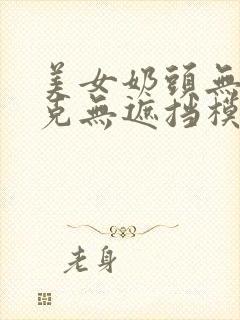 美女奶頭無
克無遮挡模
老身